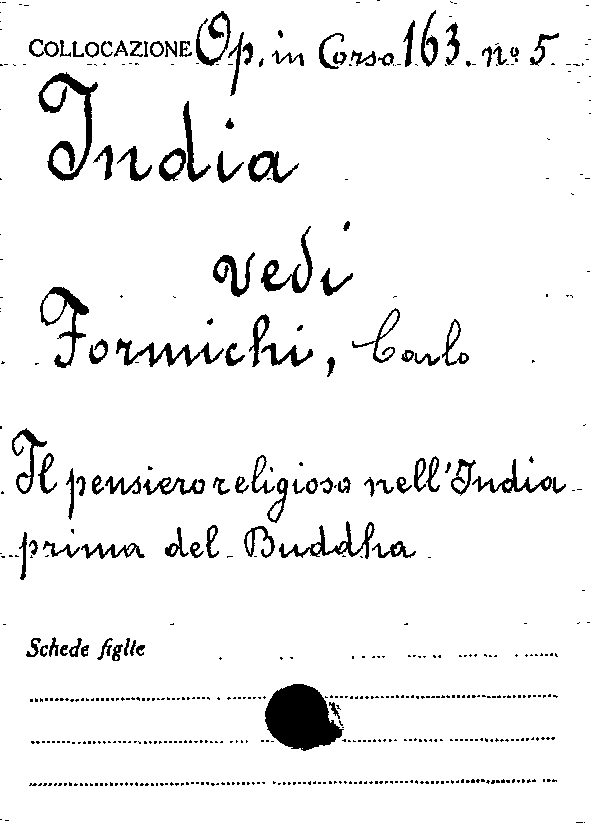 COLLOCAZIONE Op. in Corso 163. nº 5
India
vedi
Formichi, Carlo
Il pensiero religioso nell'India
prima del Buddha
Schede figlie